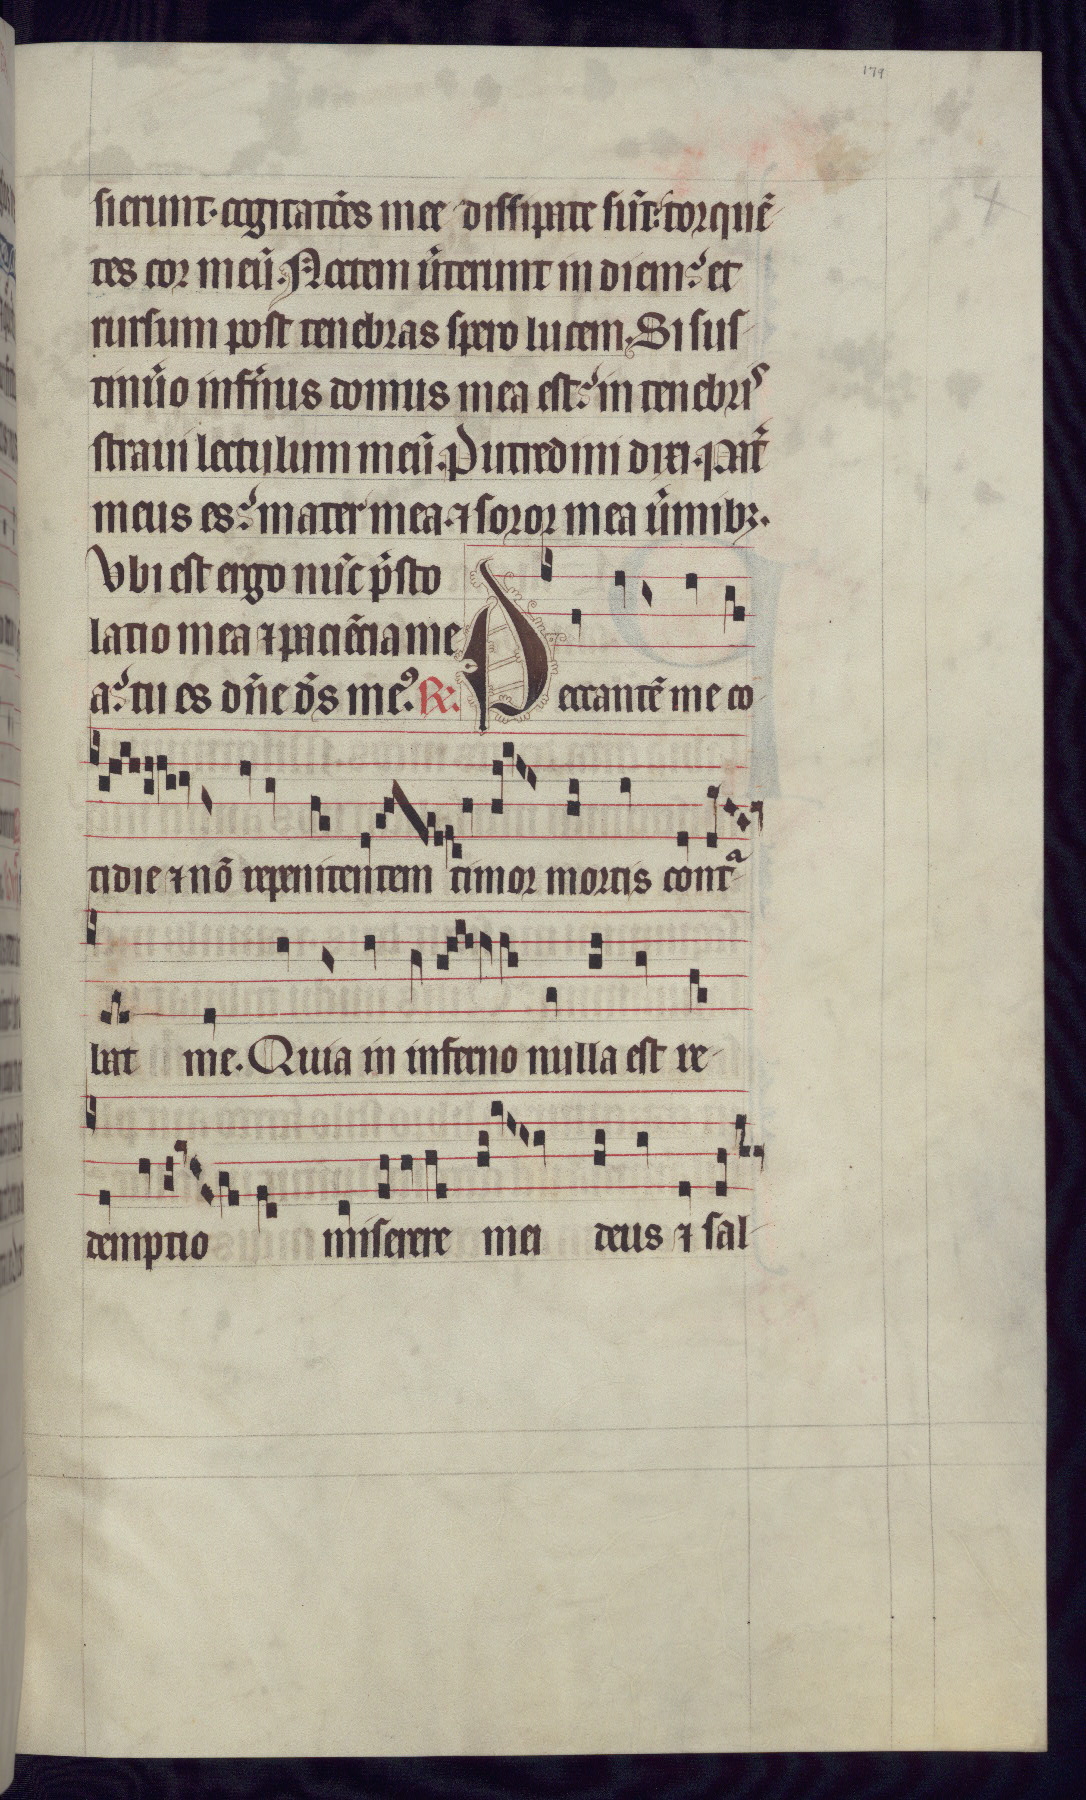 179
sierunt. cogitatōes mee dissipate sūt: torquē-
tes cor meū. Noctem ūterunt in diem: et
rursum post tenebras spero lucem. Si sus-
tinūo infn̄us domus mea est: in tenebris
straui lectulum meū. Putredini dixi. Pat̄
meus es: mater mea ⁊ soror mea ūmibꝫ.
Vbi est ergo nūc p̄sto
latio mea ⁊ paciēcia me
a: tu es dn̄e ds̄ meꝰ. R̷.
Peccantē me co-
tidie ⁊ nō repenitentem timor mortis contᵃ
bat me. Quia in inferno nulla est re-
demptio miserere mei deus ⁊ sal-